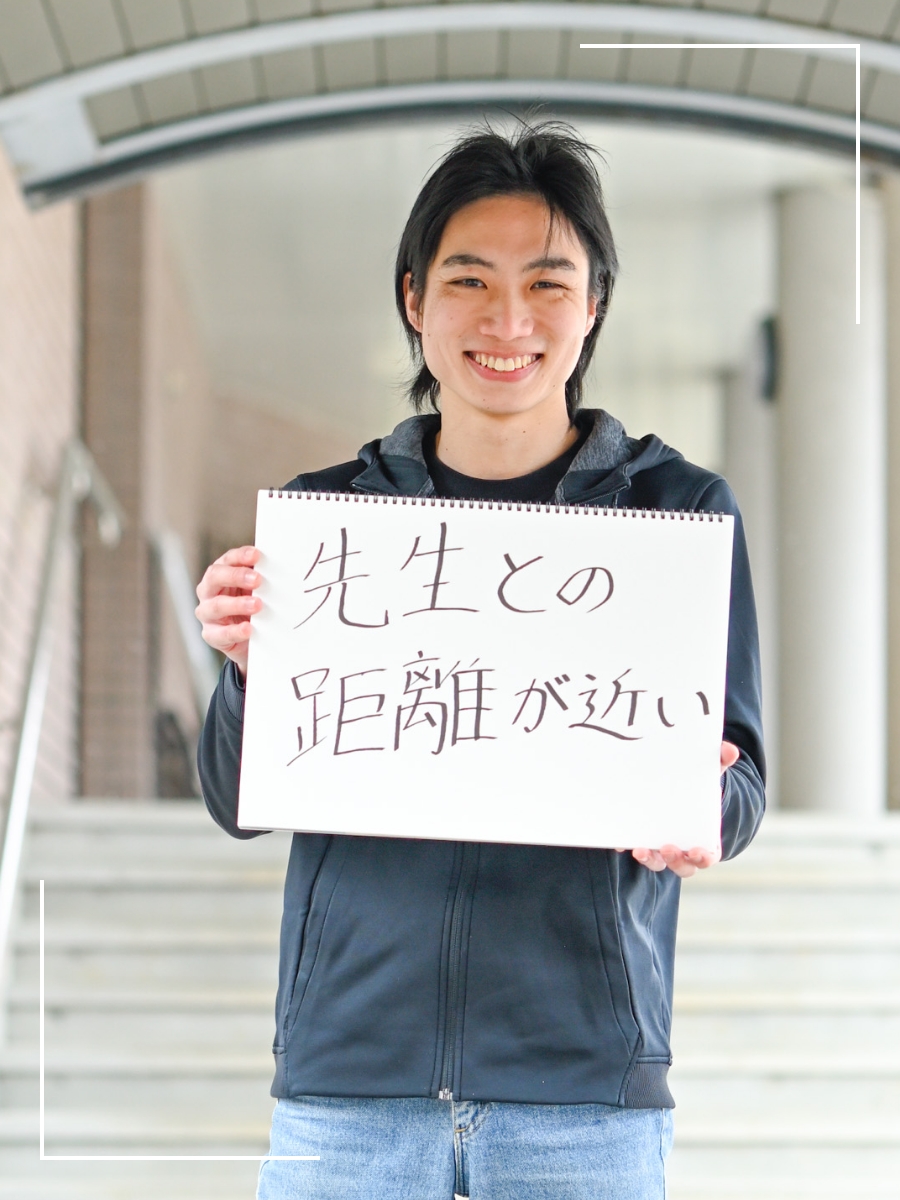 先生との
距離が近い